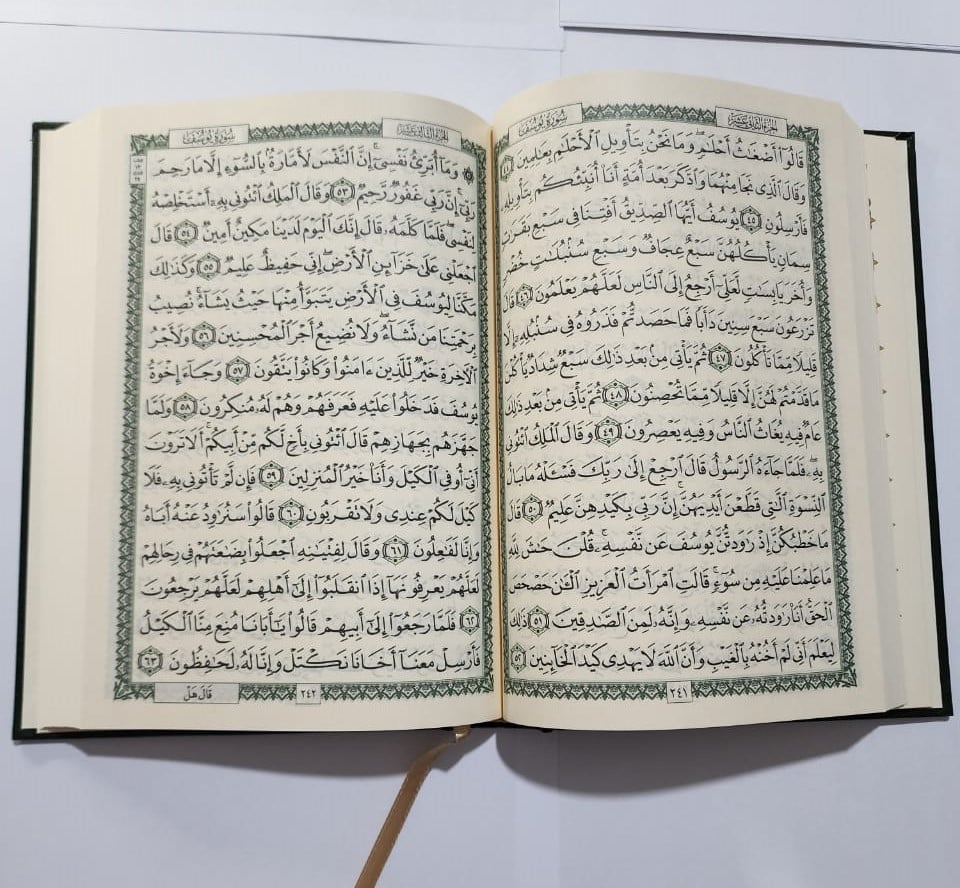 الجزء الثاني عشر
سورة يوسف
قَالُوٓا۟ أَضْغَـٰثُ أَحْلَـٰمٍ ۖ وَمَا نَحْنُ بِتَأْوِيلِ ٱلْأَحْلَـٰمِ بِعَـٰلِمِينَ ٤٤
وَقَالَ ٱلَّذِى نَجَا مِنْهُمَا وَٱدَّكَرَ بَعْدَ أُمَّةٍ أَنَا۠ أُنَبِّئُكُم بِتَأْوِيلِهِۦ
فَأَرْسِلُونِ ٤٥ يُوسُفُ أَيُّهَا ٱلصِّدِّيقُ أَفْتِنَا فِى سَبْعِ بَقَرَٰتٍ
سِمَانٍ يَأْكُلُهُنَّ سَبْعٌ عِجَافٌ وَسَبْعِ سُنۢبُلَـٰتٍ خُضْرٍ
وَأُخَرَ يَابِسَـٰتٍ لَّعَلِّىٓ أَرْجِعُ إِلَى ٱلنَّاسِ لَعَلَّهُمْ يَعْلَمُونَ ٤٦ قَالَ
تَزْرَعُونَ سَبْعَ سِنِينَ دَأَبًا فَمَا حَصَدتُّمْ فَذَرُوهُ فِى سُنۢبُلِهِۦٓ إِلَّا
قَلِيلًا مِّمَّا تَأْكُلُونَ ٤٧ ثُمَّ يَأْتِى مِنۢ بَعْدِ ذَٰلِكَ سَبْعٌ شِدَادٌ يَأْكُلْنَ
مَا قَدَّمْتُمْ لَهُنَّ إِلَّا قَلِيلًا مِّمَّا تُحْصِنُونَ ٤٨ ثُمَّ يَأْتِى مِنۢ بَعْدِ ذَٰلِكَ
عَامٌ فِيهِ يُغَاثُ ٱلنَّاسُ وَفِيهِ يَعْصِرُونَ ٤٩ وَقَالَ ٱلْمَلِكُ ٱئْتُونِى
بِهِۦ ۖ فَلَمَّا جَآءَهُ ٱلرَّسُولُ قَالَ ٱرْجِعْ إِلَىٰ رَبِّكَ فَسْـَٔلْهُ مَا بَالُ
ٱلنِّسْوَةِ ٱلَّـٰتِى قَطَّعْنَ أَيْدِيَهُنَّ ۚ إِنَّ رَبِّى بِكَيْدِهِنَّ عَلِيمٌ ٥٠ قَالَ
مَا خَطْبُكُنَّ إِذْ رَٰوَدتُّنَّ يُوسُفَ عَن نَّفْسِهِۦ ۚ قُلْنَ حَـٰشَ لِلَّهِ
مَا عَلِمْنَا عَلَيْهِ مِن سُوٓءٍ ۚ قَالَتِ ٱمْرَأَتُ ٱلْعَزِيزِ ٱلْـَٔـٰنَ حَصْحَصَ
ٱلْحَقُّ أَنَا۠ رَٰوَدتُّهُۥ عَن نَّفْسِهِۦ وَإِنَّهُۥ لَمِنَ ٱلصَّـٰدِقِينَ ٥١ ذَٰلِكَ
لِيَعْلَمَ أَنِّى لَمْ أَخُنْهُ بِٱلْغَيْبِ وَأَنَّ ٱللَّهَ لَا يَهْدِى كَيْدَ ٱلْخَآئِنِينَ ٥٢
٢٤١
الجزء الثالث عشر
سورة يوسف
۞ وَمَآ أُبَرِّئُ نَفْسِىٓ ۚ إِنَّ ٱلنَّفْسَ لَأَمَّارَةٌۢ بِٱلسُّوٓءِ إِلَّا مَا رَحِمَ
رَبِّىٓ ۚ إِنَّ رَبِّى غَفُورٌ رَّحِيمٌ ٥٣ وَقَالَ ٱلْمَلِكُ ٱئْتُونِى بِهِۦٓ أَسْتَخْلِصْهُ
لِنَفْسِى ۖ فَلَمَّا كَلَّمَهُۥ قَالَ إِنَّكَ ٱلْيَوْمَ لَدَيْنَا مَكِينٌ أَمِينٌ ٥٤ قَالَ
ٱجْعَلْنِى عَلَىٰ خَزَآئِنِ ٱلْأَرْضِ ۖ إِنِّى حَفِيظٌ عَلِيمٌ ٥٥ وَكَذَٰلِكَ
مَكَّنَّا لِيُوسُفَ فِى ٱلْأَرْضِ يَتَبَوَّأُ مِنْهَا حَيْثُ يَشَآءُ ۚ نُصِيبُ
بِرَحْمَتِنَا مَن نَّشَآءُ ۖ وَلَا نُضِيعُ أَجْرَ ٱلْمُحْسِنِينَ ٥٦ وَلَأَجْرُ
ٱلْـَٔاخِرَةِ خَيْرٌ لِّلَّذِينَ ءَامَنُوا۟ وَكَانُوا۟ يَتَّقُونَ ٥٧ وَجَآءَ إِخْوَةُ
يُوسُفَ فَدَخَلُوا۟ عَلَيْهِ فَعَرَفَهُمْ وَهُمْ لَهُۥ مُنكِرُونَ ٥٨ وَلَمَّا
جَهَّزَهُم بِجَهَازِهِمْ قَالَ ٱئْتُونِى بِأَخٍ لَّكُم مِّنْ أَبِيكُمْ ۚ أَلَا تَرَوْنَ
أَنِّىٓ أُوفِى ٱلْكَيْلَ وَأَنَا۠ خَيْرُ ٱلْمُنزِلِينَ ٥٩ فَإِن لَّمْ تَأْتُونِى بِهِۦ فَلَا
كَيْلَ لَكُمْ عِندِى وَلَا تَقْرَبُونِ ٦٠ قَالُوا۟ سَنُرَٰوِدُ عَنْهُ أَبَاهُ
وَإِنَّا لَفَـٰعِلُونَ ٦١ وَقَالَ لِفِتْيَـٰنِهِ ٱجْعَلُوا۟ بِضَـٰعَتَهُمْ فِى رِحَالِهِمْ
لَعَلَّهُمْ يَعْرِفُونَهَآ إِذَا ٱنقَلَبُوٓا۟ إِلَىٰٓ أَهْلِهِمْ لَعَلَّهُمْ يَرْجِعُونَ
٦٢ فَلَمَّا رَجَعُوٓا۟ إِلَىٰٓ أَبِيهِمْ قَالُوا۟ يَـٰٓأَبَانَا مُنِعَ مِنَّا ٱلْكَيْلُ
فَأَرْسِلْ مَعَنَآ أَخَانَا نَكْتَلْ وَإِنَّا لَهُۥ لَحَـٰفِظُونَ ٦٣
٢٤٢
قَالَ هَلْ